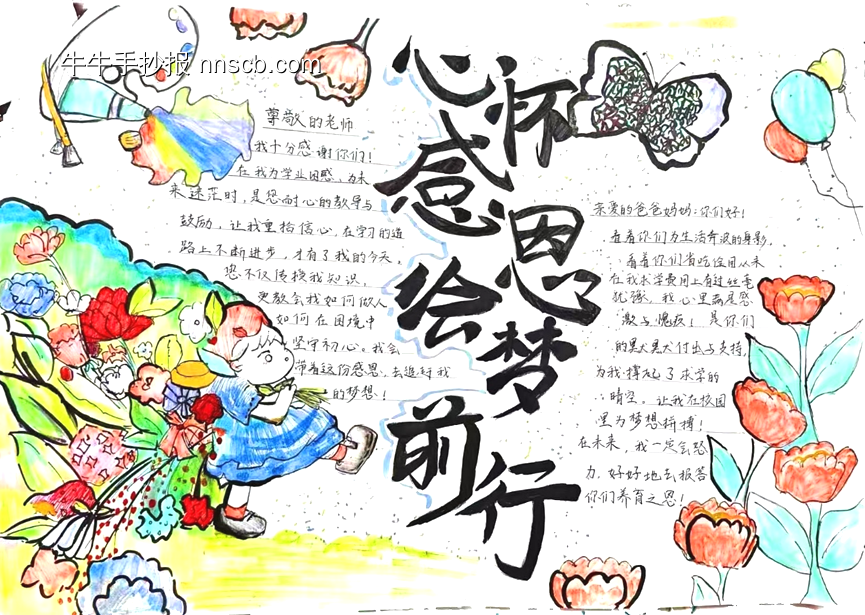 牛牛手抄报 nnscb.com
心怀感恩
绘梦前行
尊敬的老师
我十分感谢你们！
在我为学业困惑，为未
来迷茫时，是您耐心的教导与
鼓励，让我重拾信心，在学习的道
路上不断进步，才有了我的今天。
您不仅传授我知识，
更教会我如何做人
如何在困境中
坚守初心。我会
带着这份感恩，去追寻我
的梦想！
亲爱的爸爸妈妈：你们好！
看着你们为生活奔波的身影，
看着你们省吃俭用从未
在我求学费用上有过丝毫
犹豫，我心里满是感
激与愧疚！是你们
的默默付出与支持，
为我撑起了求学的
晴空。让我在校园
里为梦想拼搏！
在未来，我一定会努
力，好好地去报答
你们养育之恩！